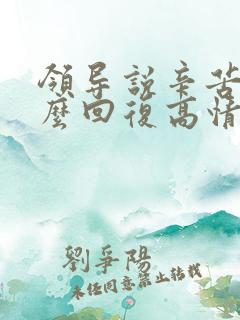 領导説辛苦
麽回復高情
劉爭陽
未任同意禁止转载